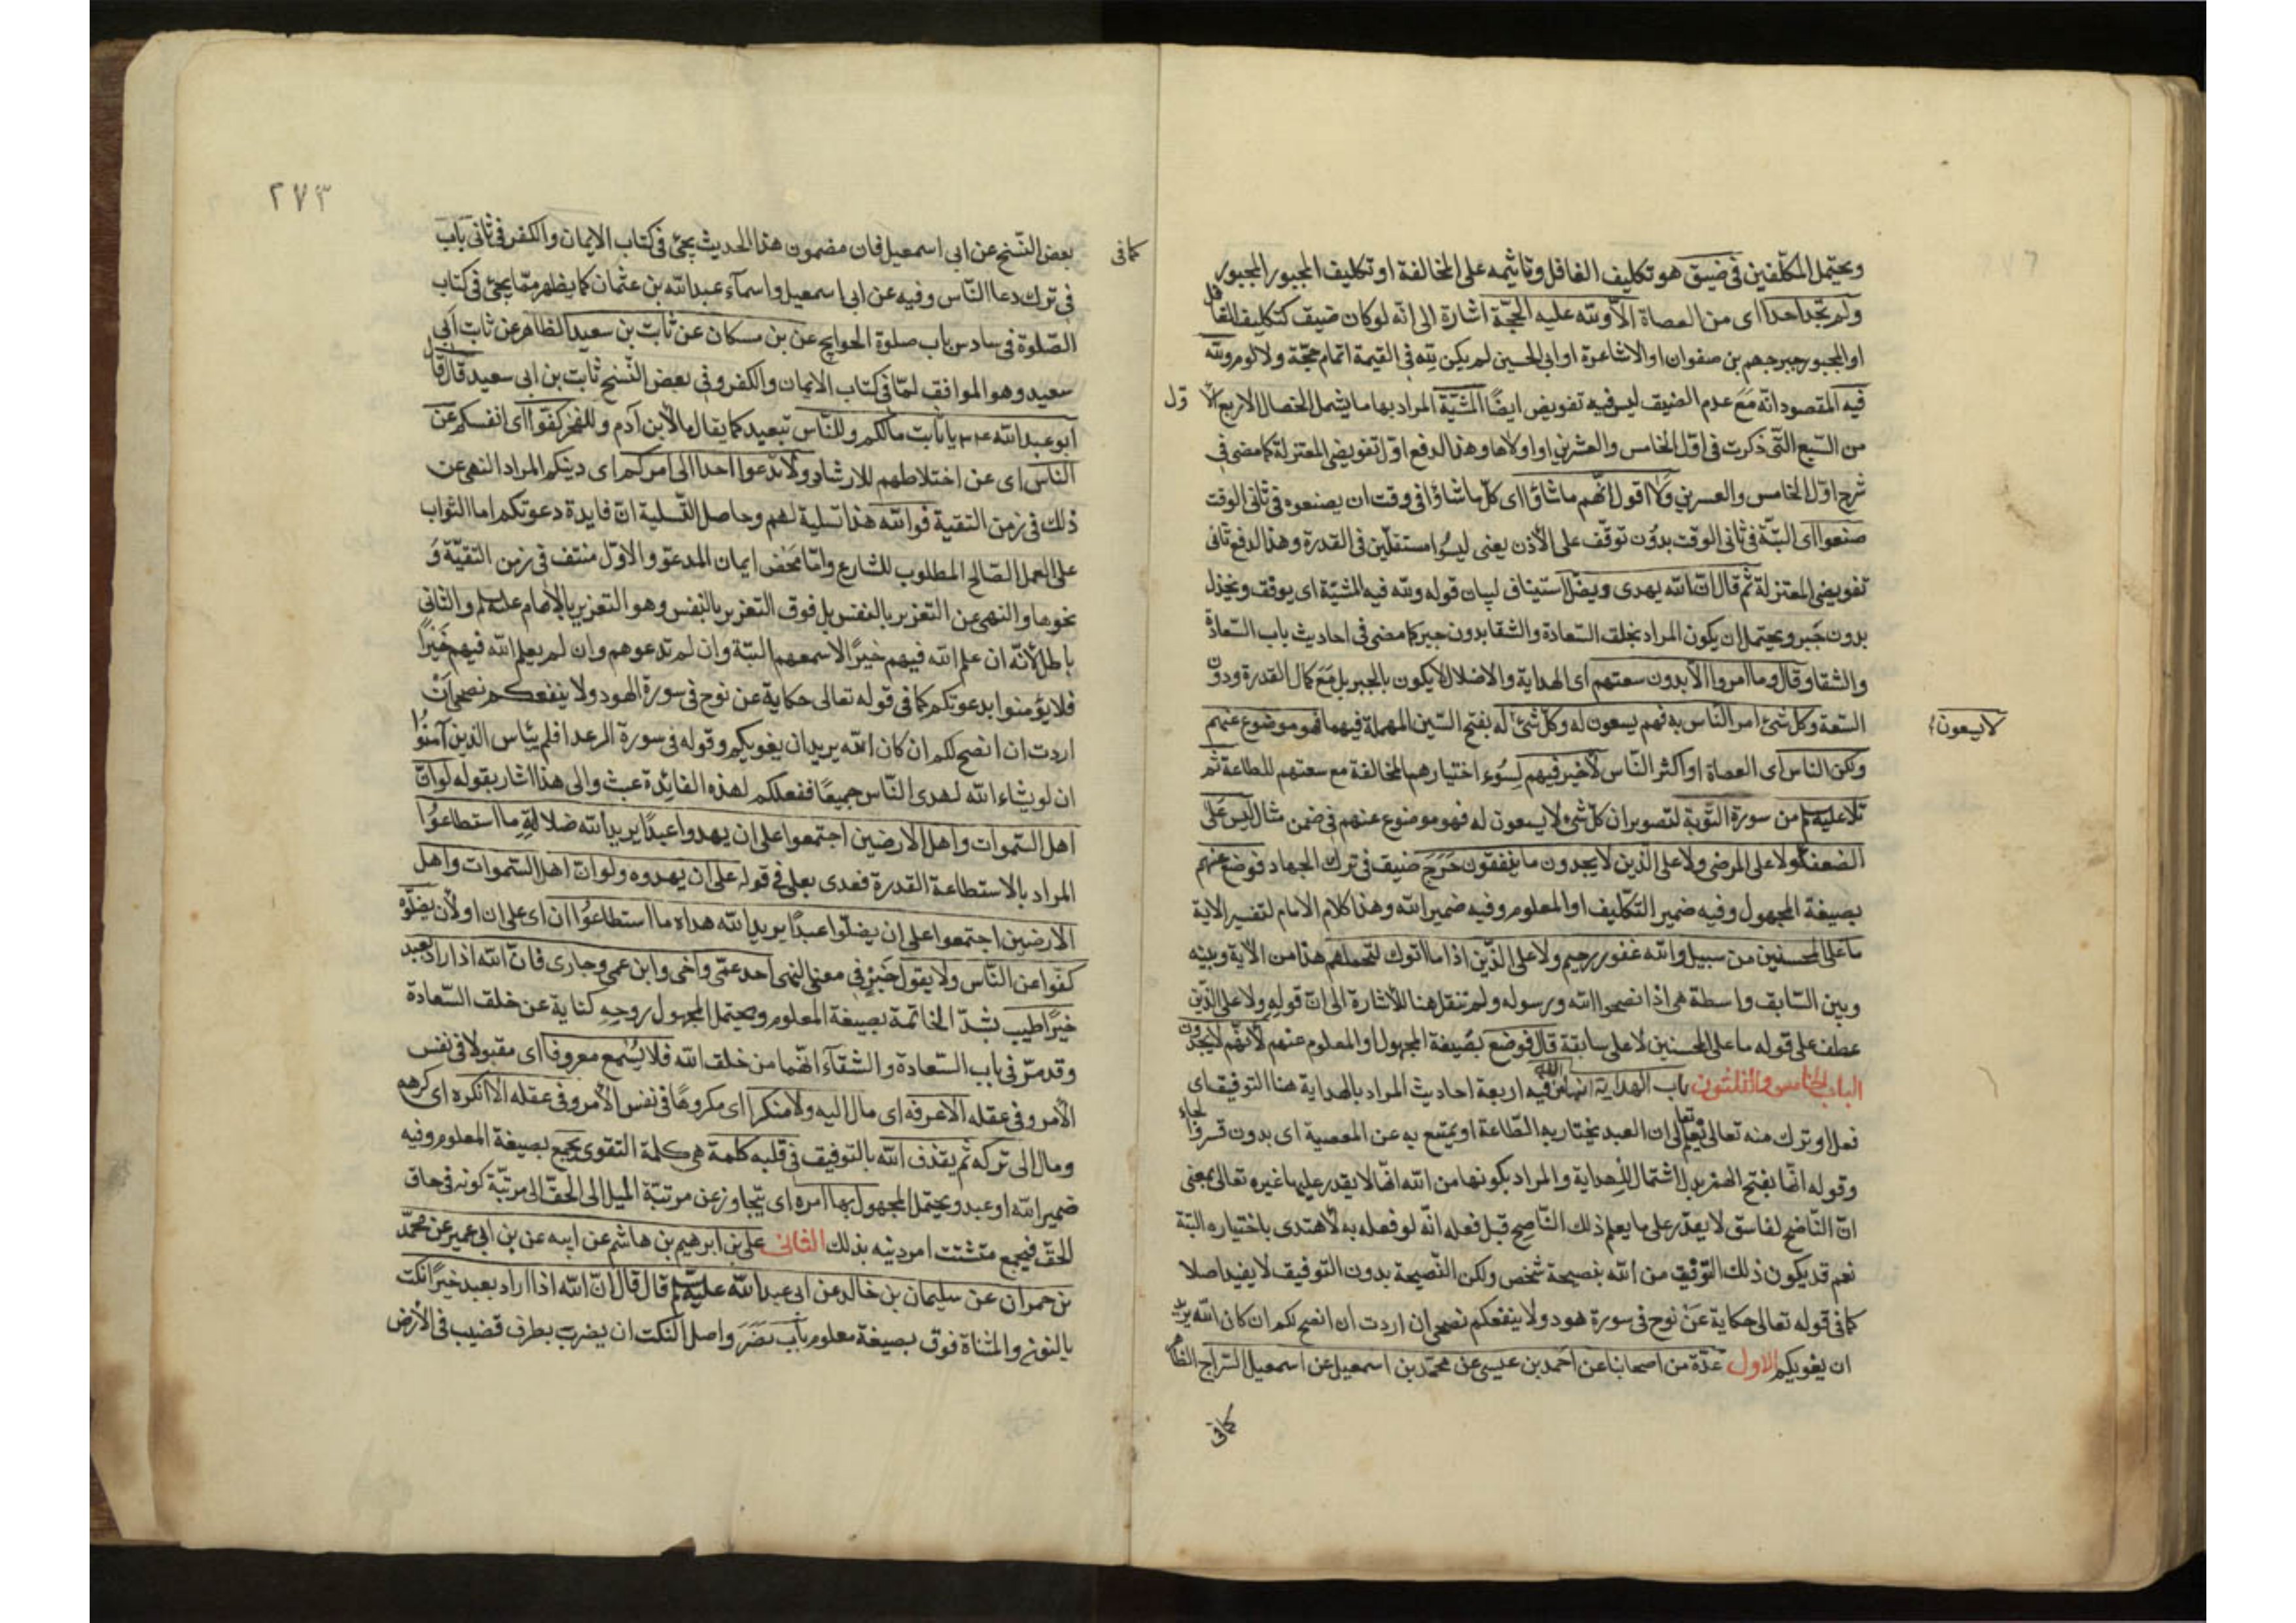 ويحتمل المكلفين فى ضيق هو تكليف الغافل وتأثيمه على المخالفة او تكليف المجبور المجبور
ولم تجد احدا اى من العصاة الا ولله عليه الحجّة اشارة الى انه لو كان ضيق كتكليف الغافل
او المجبور جبر جهم بن صفوان او الاشاعرة او ابى الحسين لم يكن لله فى القيمة اتمام حجّة ولا لوم ولله
فيه المقصود انه مع عدم الضيق ليس فيه تفويض ايضًا المشيّة المراد بها ما يشمل الخصال الاربع الاول
من السّبع التى ذكرت فى اوّل الخامس والعشرين او اولاها وهذا لدفع اوّل تفويضى المعتزلة كما مضى فى
شرح اوّل الخامس والعسرين ولا اقول انّهم ما شاؤا اى كلّ ما شاؤا فى وقت ان يصنعوه فى ثانى الوقت
صنعوا اى البتّة فى ثانى الوقت بدون توقّف على الأذن يعنى ليسُوا مستقلّين فى القدرة وهذا لدفع ثانى
تفويضى المعتزلة ثم قال انّ الله يهدى ويضلّ استيناف لبيان قوله ولله فيه المشيّة اى يوفّق ويخذل
بدون جبر ويحتمل ان يكون المراد بخلق السّعادة والشقا بدون جبر كما مضى فى احاديث باب السّعادة
والشقا وقال وما امروا الا بدون سعتهم اى الهداية والاضلال لا يكون بالجبر بل مع كمال القدرة ودون
السّعة وكل شئ امر النّاس به فهم يسعون له وكلّ شئ له بفتح السّين المهملة فيهما فهو موضوع عنهم
لا يسعون
ولكن الناس اى العصاة او اكثر النّاس لا خير فيهم لسُوء اختيارهم المخالفة مع سعتهم للطاعة ثم
تلا عليه من سورة التّوبة لتصوير ان كلّ شئ لا يسعون له فهو موضوع عنهم فى ضمن مثال ليس على
الضعفاء ولا على المرضى ولا على الّذين لا يجدون ما ينفقون حَرَج ضيق فى ترك الجهاد فوضع عنهم
بصيغة المجهول وفيه ضمير التكليف او المعلوم وفيه ضمير الله وهذا كلام الامام لتفسير الاية
ما على المحسنين من سبيل والله غفور رحيم ولا على الّذين اذا ما اتوك لتحملهم هذا من الاية وبينه
وبين السّابق واسطة هى اذا نصحوا الله ورسوله ولم تنقل هنا للأشارة الى انّ قوله ولا على الّذين
عطف على قوله ما على المحسنين لا على سابقة قال فوضع بصيغة المجهول او المعلوم عنهم لأنّهم لا يجدون
الباب الخامس والثلثون باب الهداية انها من الله فيه اربعة احاديث المراد بالهداية هنا التوفيق اى
فعل او ترك منه تعالى يعلم تعالى ان العبد يختار به الطّاعة او يمتنع به عن المعصية اى بدون قسر والجاء
وقوله انّها بفتح الهمزة بدل اشتمال للهداية والمراد بكونها من الله انّها لا يقدر عليها غيره تعالى بمعنى
انّ النّاصح لفاسق لا يقدر على ما يعلم ذلك النّاصح قبل فعله انّه لو فعله به لاهتدى باختياره البتّة
نعم قد يكون ذلك التّوفيق من الله بنصيحة شخص ولكن النّصيحة بدون التوفيق لا يفيد اصلا
كما فى قوله تعالى حكاية عن نوح فى سورة هود ولا ينفعكم نصحى ان اردت ان انصح لكم ان كان الله يريد
ان يغويكم الاول عدّة من اصحابنا عن احمد بن عيسى عن محمّد بن اسمعيل عن اسمعيل السّراج الظاهر
كافى
٢٧٣
كافى
بعض النّسخ عن ابى اسمعيل فان مضمون هذا الحديث يجئ فى كتاب الايمان والكفر فى ثانى باب
فى ترك دعا النّاس وفيه عن ابى اسمعيل واسماء عبد الله بن عثمان كما يظهر ممّا يجئ فى كتاب
الصّلوة فى سادس باب صلوة الحوايج عن بن مسكان عن ثابت بن سعيد الظاهر عن ثابت ابى
سعيد وهو الموافق لما فى كتاب الايمان والكفر وفى بعض النّسخ ثابت بن ابى سعيد قال قال
ابو عبد الله يا ثابت مالكم وللنّاس تبعيد كما يقال مالأبن آدم وللفخر كفّوا اى انفسكم عن
الناس اى عن اختلاطهم للارشاد ولا تدعوا احدا الى امركم اى دينكم المراد النهى عن
ذلك فى زمن التقية فوالله هذا تسلية لهم وحاصل التّسلية انّ فايدة دعوتكم اما الثواب
على العمل الصّالح المطلوب للشارع وامّا محض ايمان المدعوّ والاوّل منتف فى زمن التقيّة وَ
نحوها والنهى عن التعزير بالنفس بل فوق التعزير بالنفس وهو التعزير بالأمام والثانى
باطل لأنّه ان علم الله فيهم خيرًا لاسمعهم البتّة وان لم تدعوهم وان لم يعلم الله فيهم خَيْرًا
فلا يؤمنوا بدعوتكم كما فى قوله تعالى حكاية عن نوح فى سورة الهود ولا ينفعكم نصحى اَنْ
اردت ان انصح لكم ان كان الله يريد ان يغويكم وقوله فى سورة الرعد افلم ييأس الذين آمنوا
ان لو يشاء الله لهدى النّاس جميعًا ففعلكم لهذه الفائدة عبث والى هذا اشار بقوله لو انّ
اهل السّموات واهل الارضين اجتمعوا على ان يهدوا عبدًا يريد الله ضلالته ما استطاعُوا
المراد بالاستطاعة القدرة فعدى بعلى فى قوله على ان يهدوه ولو انّ اهل السّموات واهل
الارضين اجتمعوا على ان يضلّوا عبدًا يريد الله هداه ما استطاعُوا ان اى على ان او لأن يضلّوه
كفّوا عن النّاس ولا يقول خبر فى معنى النهى احد عمّى واخى وابن عمى وجارى فانّ الله اذا اراد بعبد
خيرًا طيب بشدّ الخاتمة بصيغة المعلوم ويحتمل المجهول روحه كناية عن خلق السّعادة
وقد مرّ فى باب السّعادة والشّقآء انّهما من خلق الله فلا يسمع معروفا اى مقبولا فى نفس
الأمر وفى عقله الا عرفه اى مال اليه ولا منكرا اى مكروهًا فى نفس الأمر وفى عقله الا انكره اى كرهه
ومال الى تركه ثم يقذف الله بالتوفيق فى قلبه كلمة هى كلمة التقوى يجمع بصيغة المعلوم وفيه
ضمير الله او عبد ويحتمل المجهول بها امره اى يتجاوز عن مرتبّة الميل الى الحقّ الى مرتبّة كونه فى حاق
الحقّ فيجمع متشتت امر دينه بذلك الثانى على بن ابرهيم بن هاشم عن ابيه عن بن ابى عمير عن محمّد
بن حمران عن سليمان بن خالد عن ابى عبد الله عليه قال قال انّ الله اذا اراد بعبد خيرًا نكت
بالنون والمثناة فوق بصيغة معلوم باب نصَرَ واصل النكت ان يضرب بطرف قضيب فى الأرض